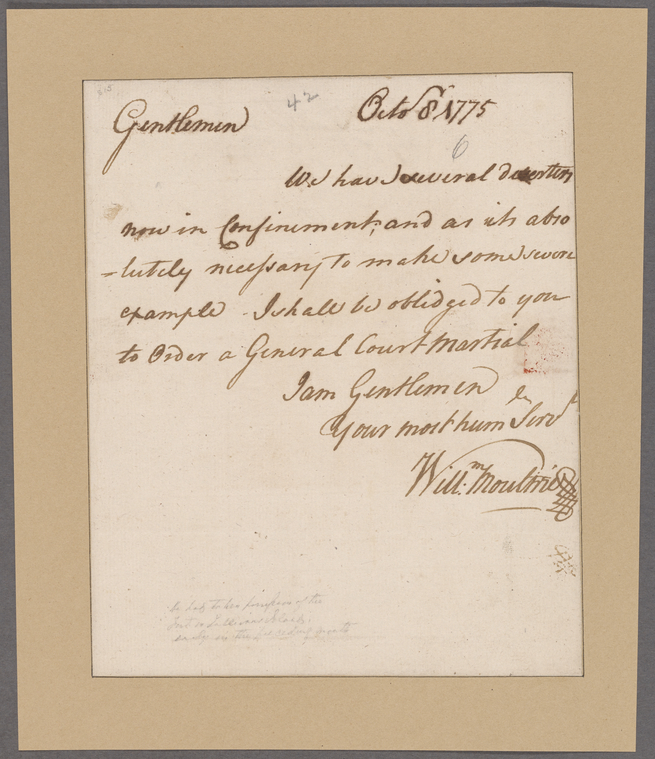 42
Octo 8th 1775
Gentlemen
6
We have several deserters
now in Confinement, and as its abso
-lutely necessary to make some severe
example - I shall be obledged to you
to Order a General Court Martial
I am Gentlemen
Your most humble Servt
Willm. Moultrie